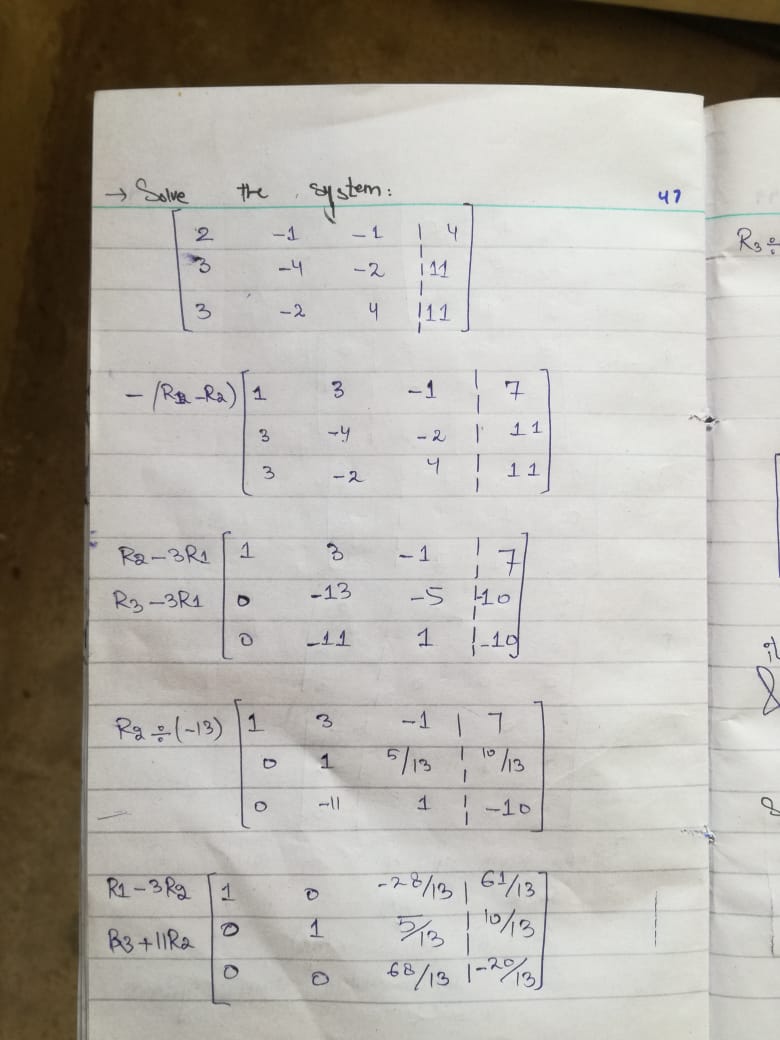 → Solve the system: 47
2 -1 -1 | 4
3 -4 -2 | 11
3 -2 4 | 11
-(R1-R2) 1 3 -1 | 7
3 -4 -2 | 11
3 -2 4 | 11
R2-3R1 1 3 -1 | 7
R3-3R1 0 -13 -5 | -10
0 -11 1 | -10
R2÷(-13) 1 3 -1 | 7
0 1 5/13 | 10/13
0 -11 1 | -10
R1-3R2 1 0 -28/13 | 61/13
R3+11R2 0 1 5/13 | 10/13
0 0 68/13 | -20/13
R3÷